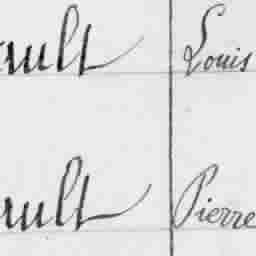 ault Louis
ault Pierre